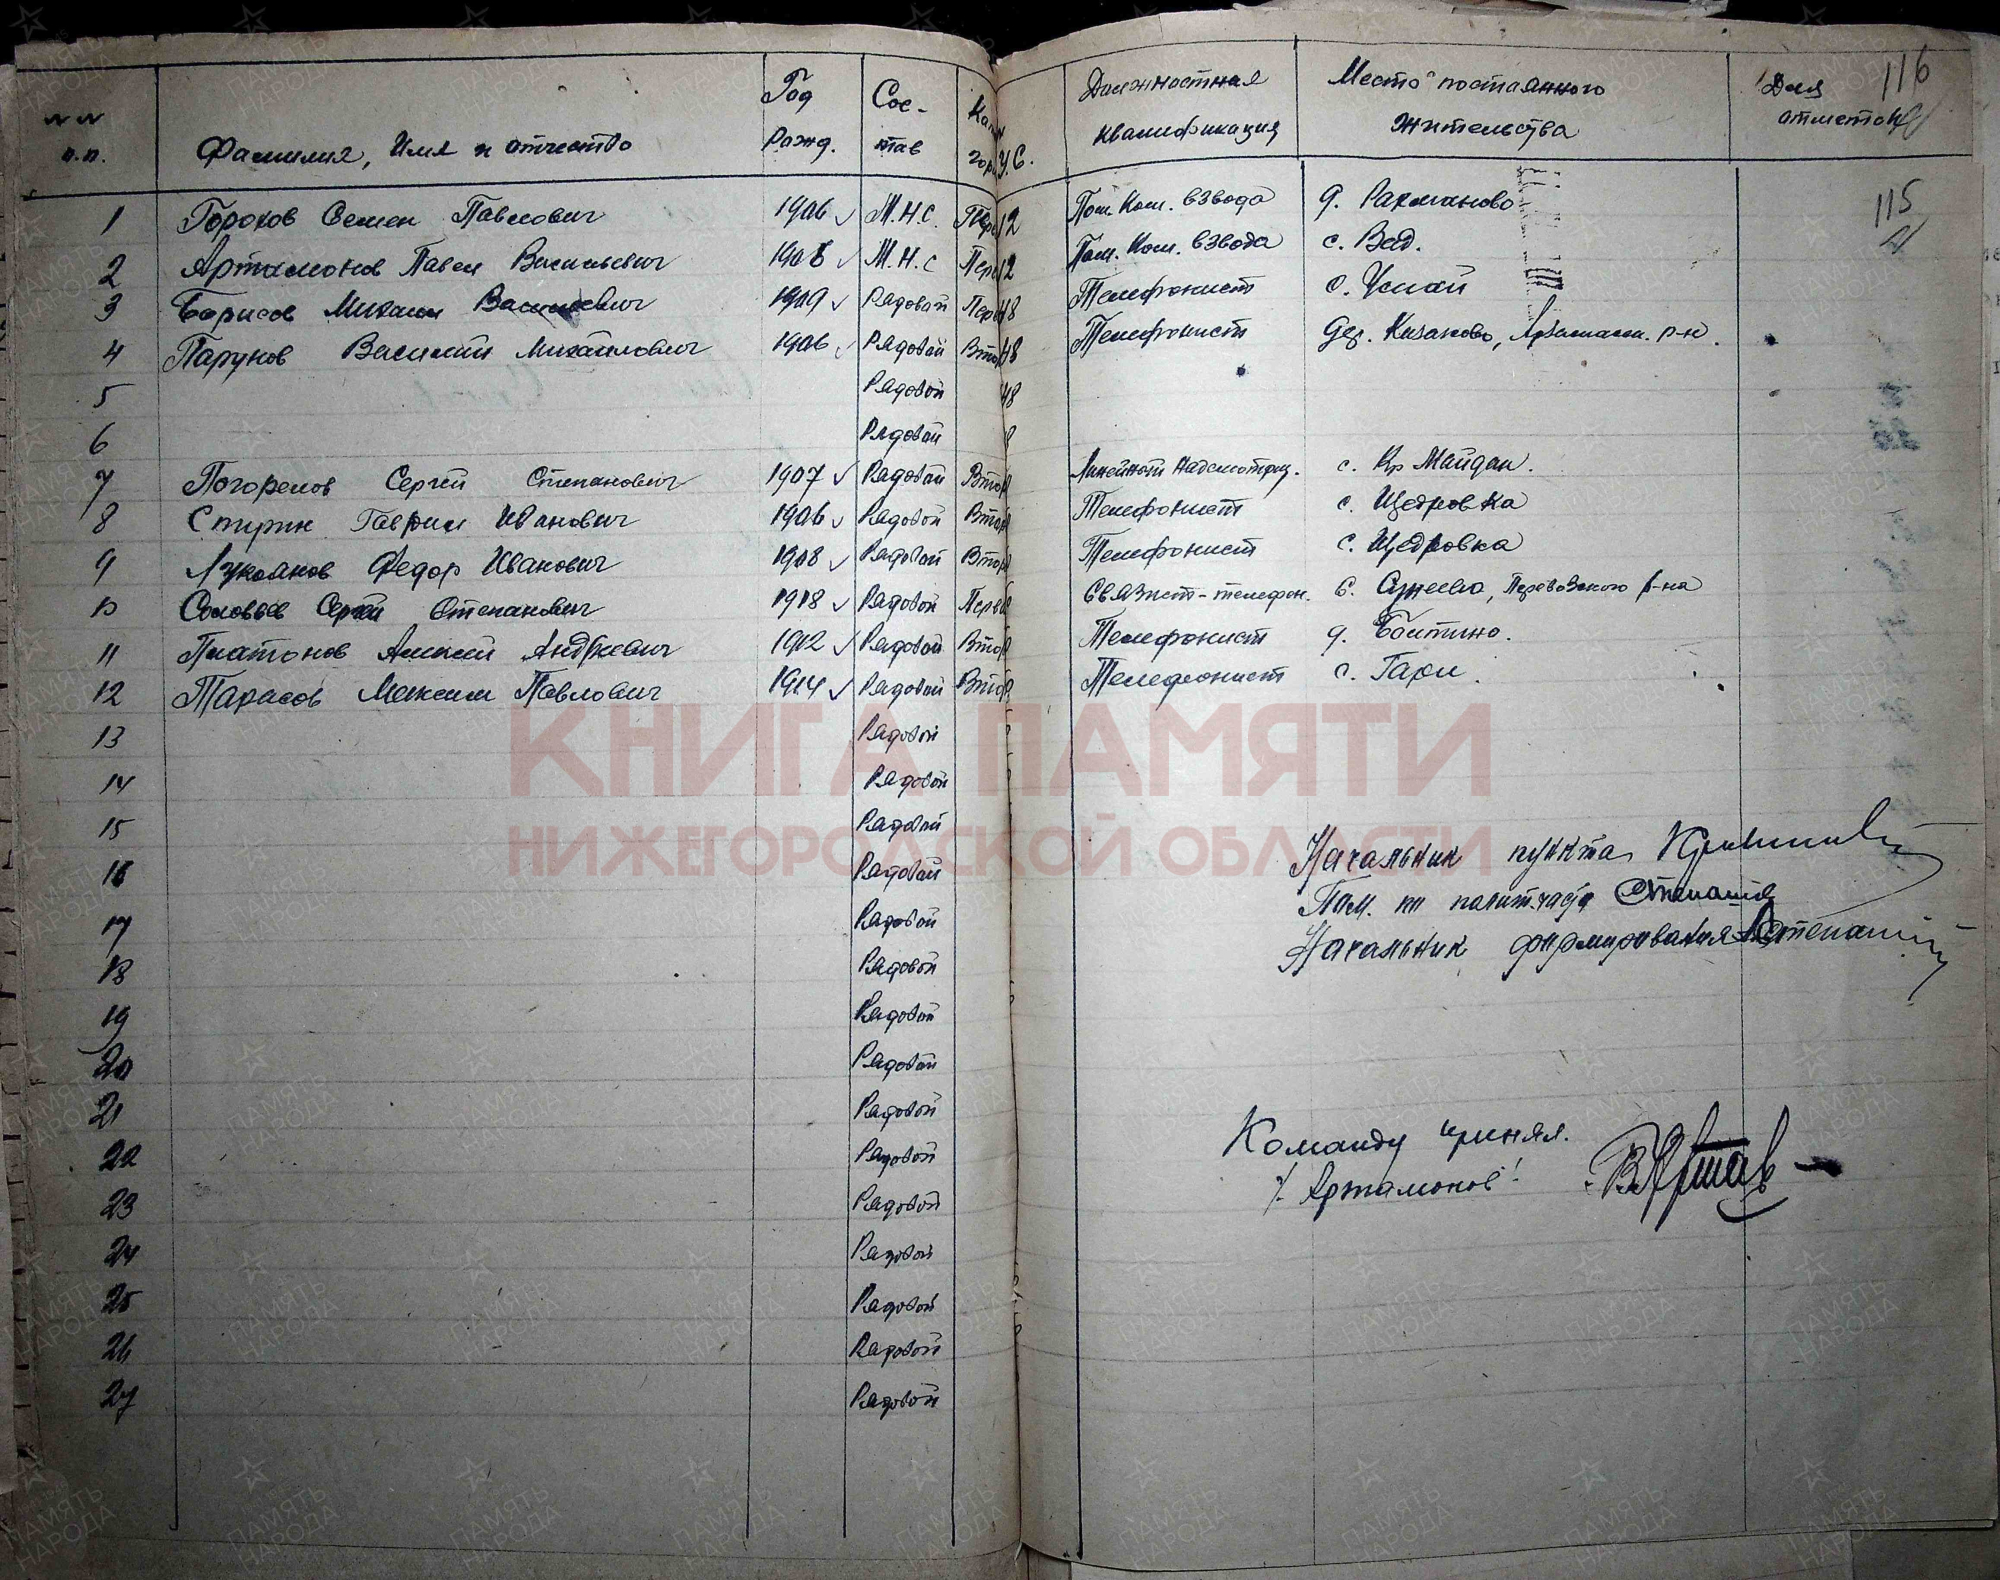 № № п.п. Фамилия, Имя и отчество Год Рожд. Сос-тав У.С. Должностная квалификация Место постоянного жительства Для отметок
116
115
1 Горохов Семен Павлович 1906 М.Н.С. 12 Пом. Ком. взвода д. Рахманово
2 Артамонов Павел Васильевич 1908 М.Н.С 12 Пом. Ком. взвода с. Вад.
3 Борисов Михаил Васильевич 1909 Рядовой 48 Телефонист с.
4 Парунов Василий Михайлович 1906 Рядовой 48 Телефонист дер. Казаково, Арзамаск. р-н.
5 Рядовой 48
6 Рядовой 8
7 Погорелов Сергей Степанович 1907 Рядовой Втор Линейный надсмотрщ. с. Кр Майдан.
8 Спирин Гаврил Иванович 1906 Рядовой Втор Телефонист с. Щедровка
9 Лукоянов Федор Иванович 1908 Рядовой Втор Телефонист с. Щедровка
10 Соловьев Сергей Степанович 1918 Рядовой Перв Связист-телефон. с. Перевозского р-на
11 Платонов Алексей Андреевич 1912 Рядовой Втор Телефонист д.
12 Тарасов Максим Павлович 1914 Рядовой Втор Телефонист с. Гари.
13 Рядовой
14 Рядовой
15 Рядовой
16 Рядовой
17 Рядовой
18 Рядовой
19 Рядовой
20 Рядовой
21 Рядовой
22 Рядовой
23 Рядовой
24 Рядовой
25 Рядовой
26 Рядовой
27 Рядовой
Начальник пункта
Пом. по полит.части
Начальник формирования
Команду принял.
/Артамонов/
КНИГА ПАМЯТИ
НИЖЕГОРОДСКОЙ ОБЛАСТИ
ПАМЯТЬ НАРОДА